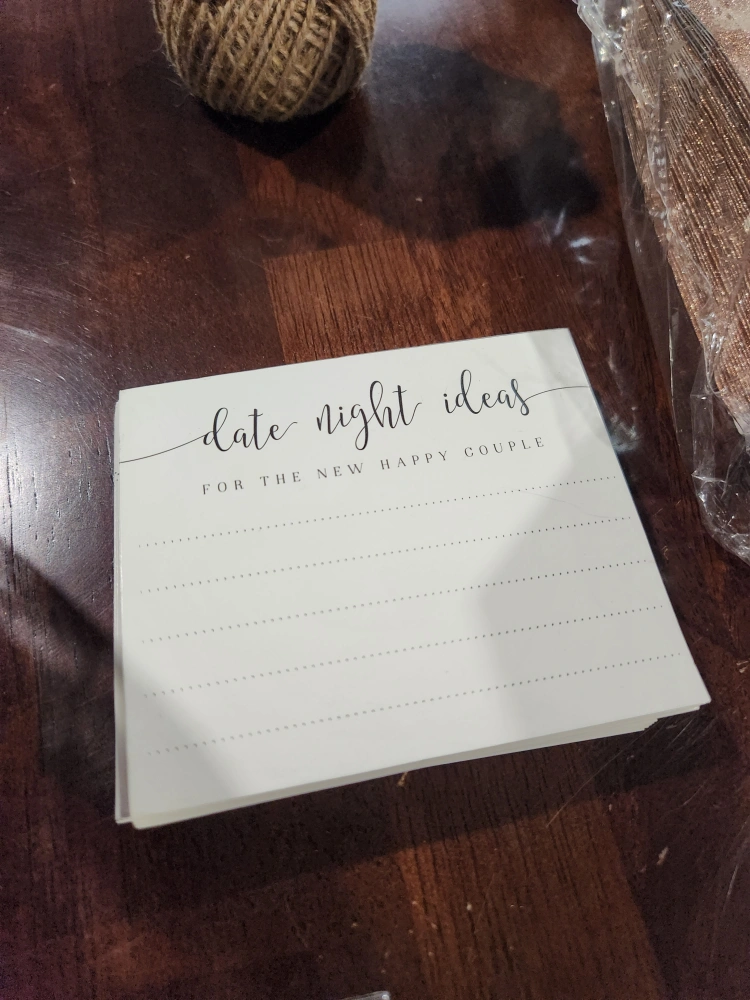 date night ideas
FOR THE NEW HAPPY COUPLE